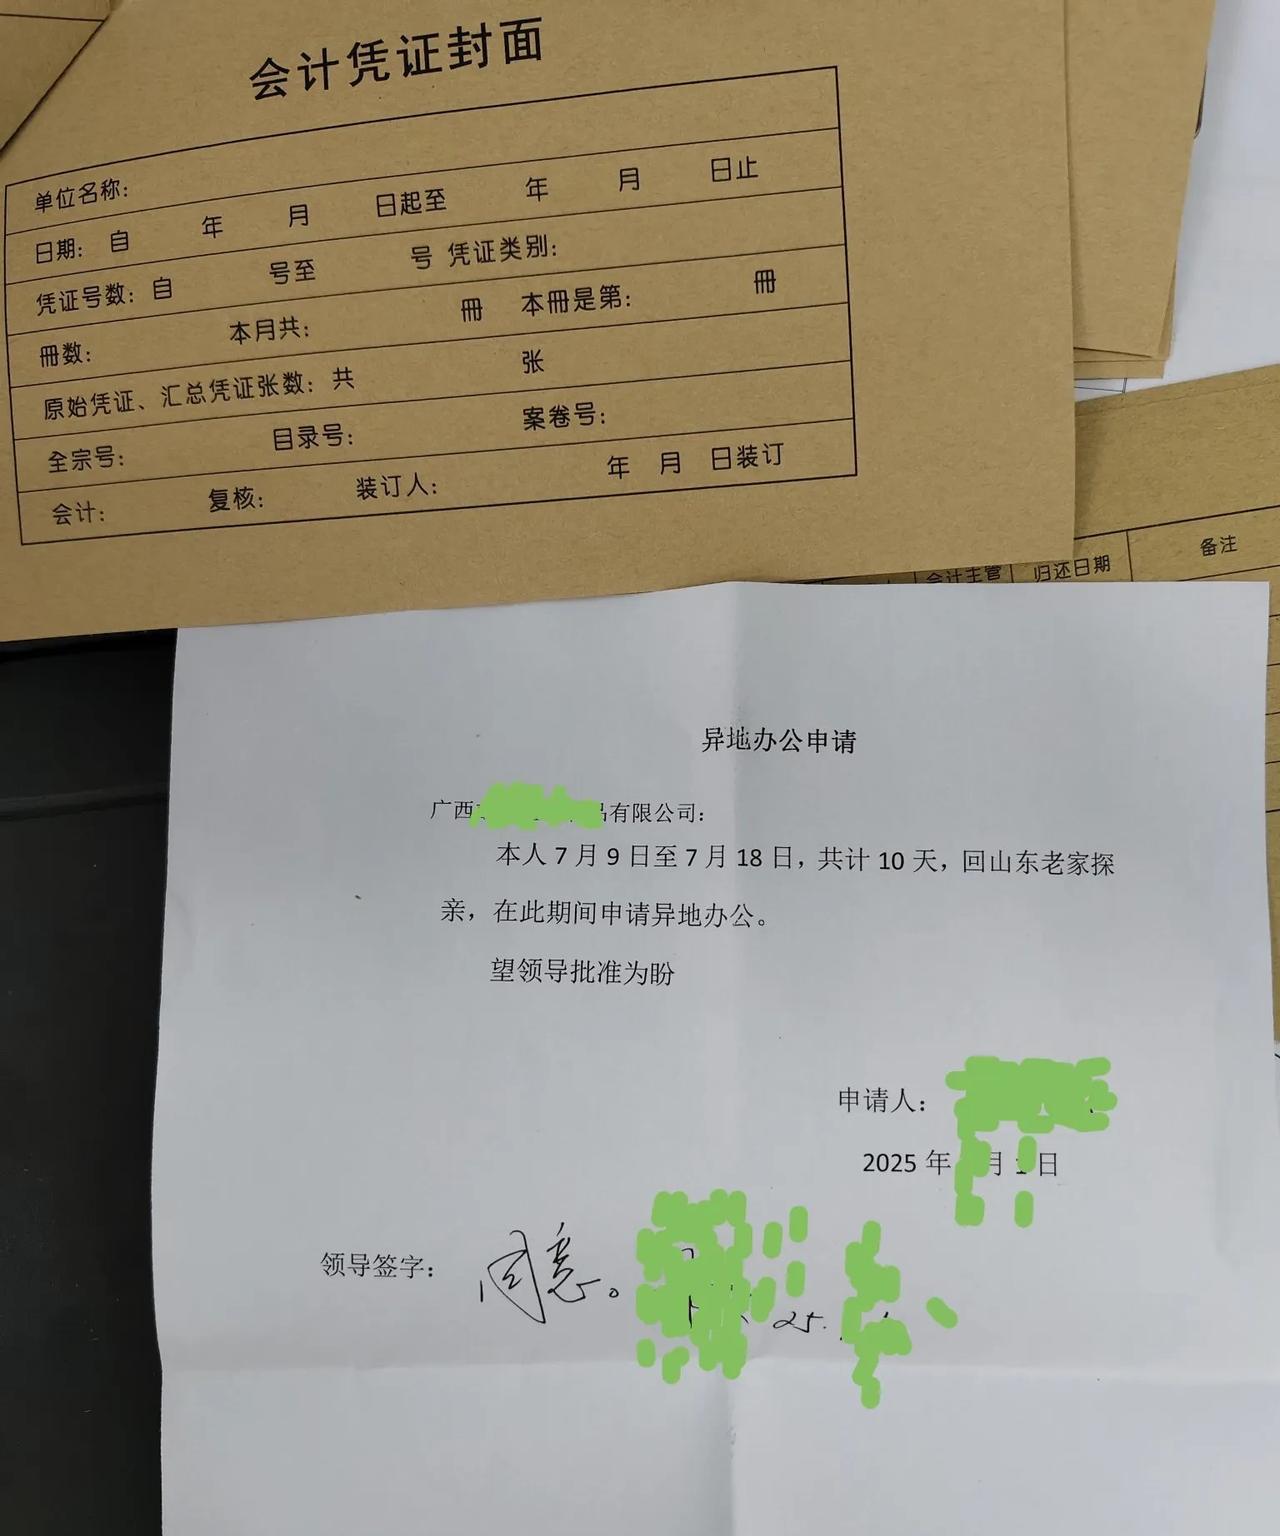 会计凭证封面
单位名称：
日期：自 年 月 日起至 年 月 日止
凭证号数：自 号至 号 凭证类别：
冊数： 本月共： 冊 本冊是第： 冊
原始凭证、汇总凭证张数：共 张
全宗号： 目录号： 案卷号：
会计： 复核： 装订人： 年 月 日装订
会计主管 归还日期 备注
异地办公申请
广西 品有限公司：
本人 7 月 9 日至 7 月 18 日，共计 10 天，回山东老家探
亲，在此期间申请异地办公。
望领导批准为盼
申请人：
2025 年 月 日
领导签字： 同意。 25.